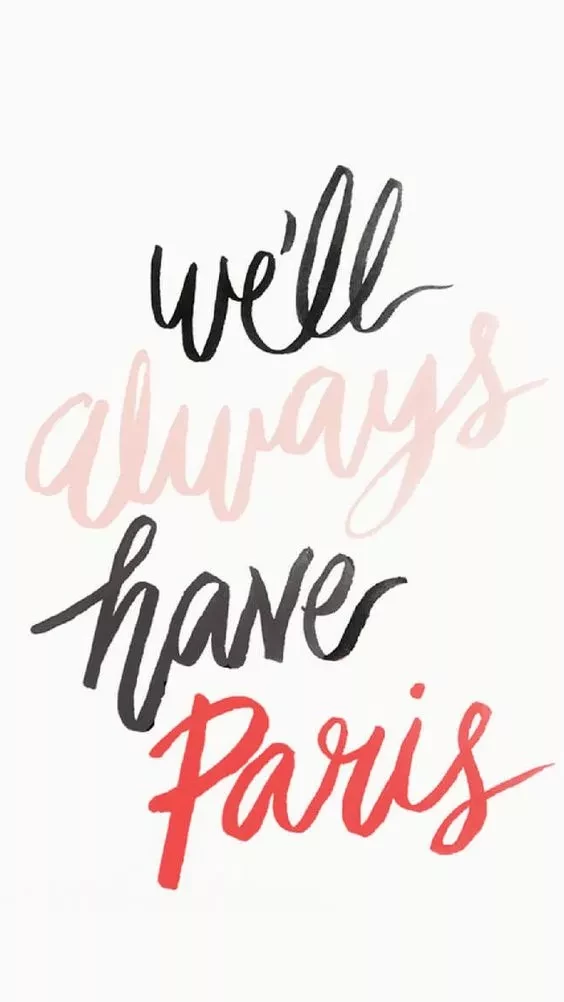 we'll
always
have
Paris